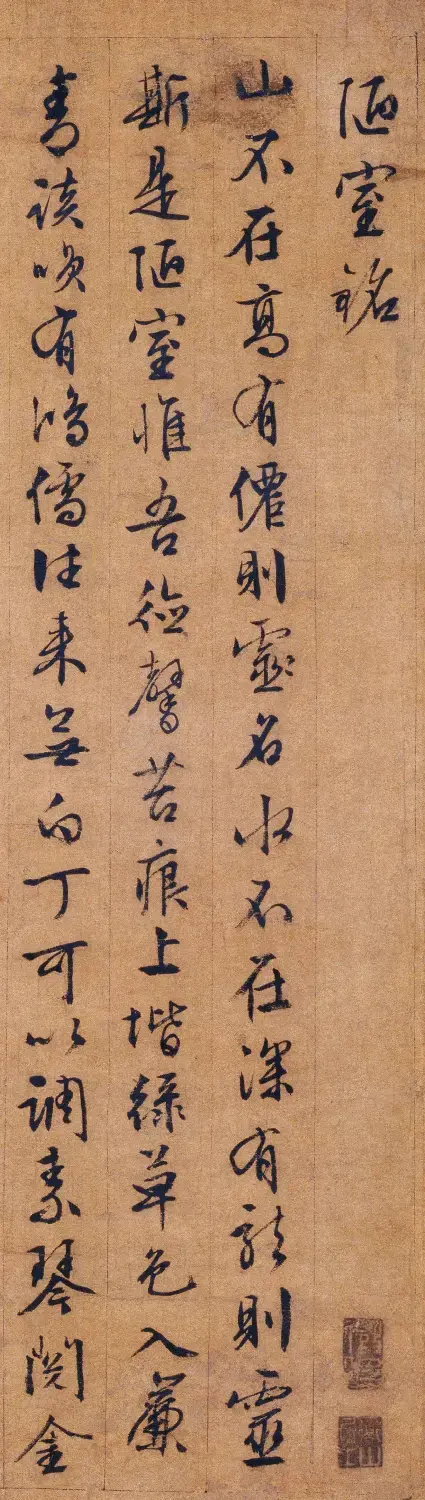 陋室銘
山不在高有僊則靈名水不在深有龍則靈
斯是陋室惟吾德馨苔痕上堦綠草色入簾
青談咲有鴻儒往来無白丁可以調素琴閱金